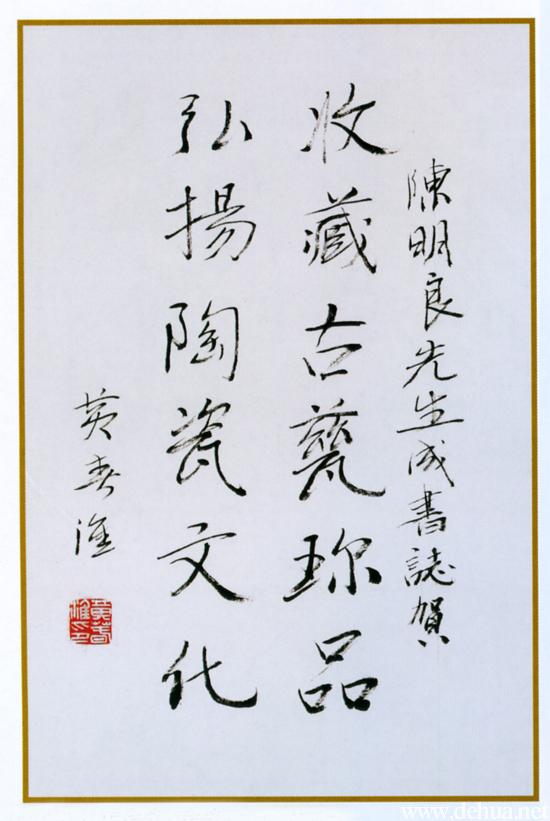 陳明良先生成書誌賀
收藏古甆珎品
弘揚陶瓷文化
黄春淮
黄春淮印
www.dehua.net